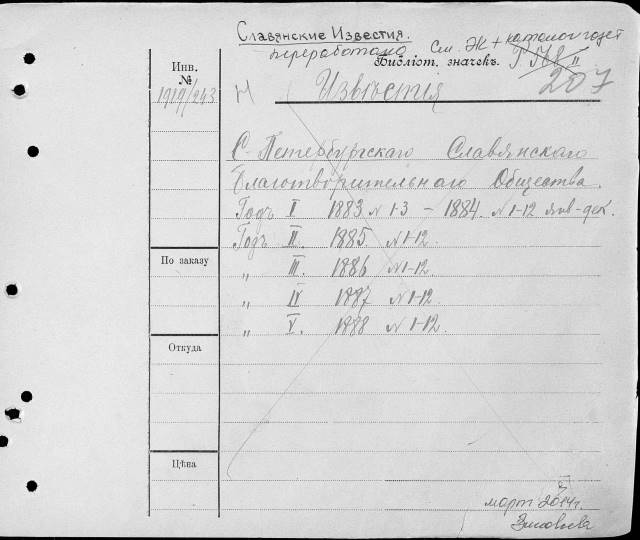 Славянские Известия.
переработано см. Ж + каталог газет
Инв.
№
1919/243
Библіот. значекъ.
207
Н
Извѣстія
С. Петербургскаго Славянскаго
Благотворительнаго Общества.
Годъ I 1883 № 1-3 – 1884. № 1-12 янв-дек.
Годъ II. 1885. № 1-12.
По заказу
„ III. 1886 № 1-12.
„ IV 1887 № 1-12.
„ V. 1888 № 1-12.
Откуда
Цѣна
март 2014г.
Зиновьева